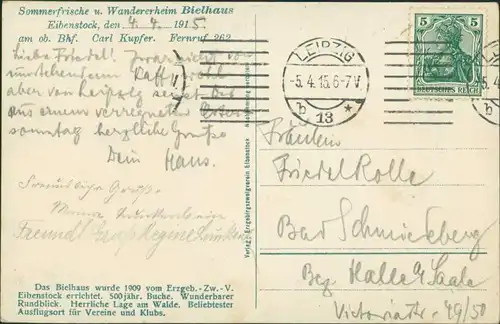 Sommerfrische u. Wandererheim Bielhaus
Eibenstock, den 4. 4. 1915.
am ob. Bhf. Carl Kupfer. Fernruf 262
Liebe Friedel! Zwar nicht von
umstehendem
aber von Leipzig sendet Dir
aus einem verregneten Oster-
sonntag herzliche Grüße
Dein Hans.
Freundliche Grüße
Freundl. Gruß Regine
Das Bielhaus wurde 1909 vom Erzgeb.-Zw.-V.
Eibenstock errichtet. 500jähr. Buche. Wunderbarer
Rundblick. Herrliche Lage am Walde. Beliebtester
Ausflugsort für Vereine und Klubs.
Verlag: Erzgebirgszweigverein Eibenstock
LEIPZIG
-5. 4. 15. 6-7 V.
b 13 *
5 5
DEUTSCHES REICH
Fräulein
Friedel Rolle
Bad Schmiedeberg
Bez. Halle a/ Saale
Victoriastr. 49/50